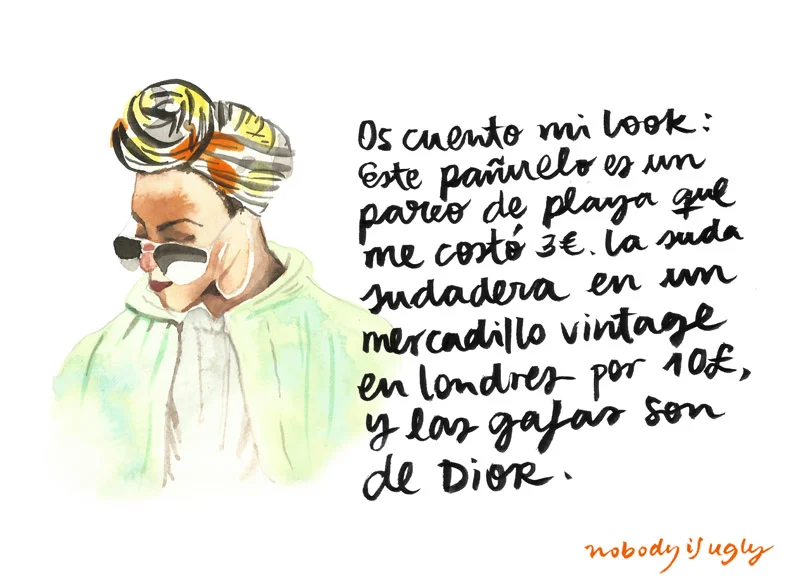 Os cuento mi look:
Este pañuelo es un
pareo de playa que
me costó 3€. La suda
sudadera en un
mercadillo vintage
en Londres por 10£,
y las gafas son
de DIOR.
nobody is ugly